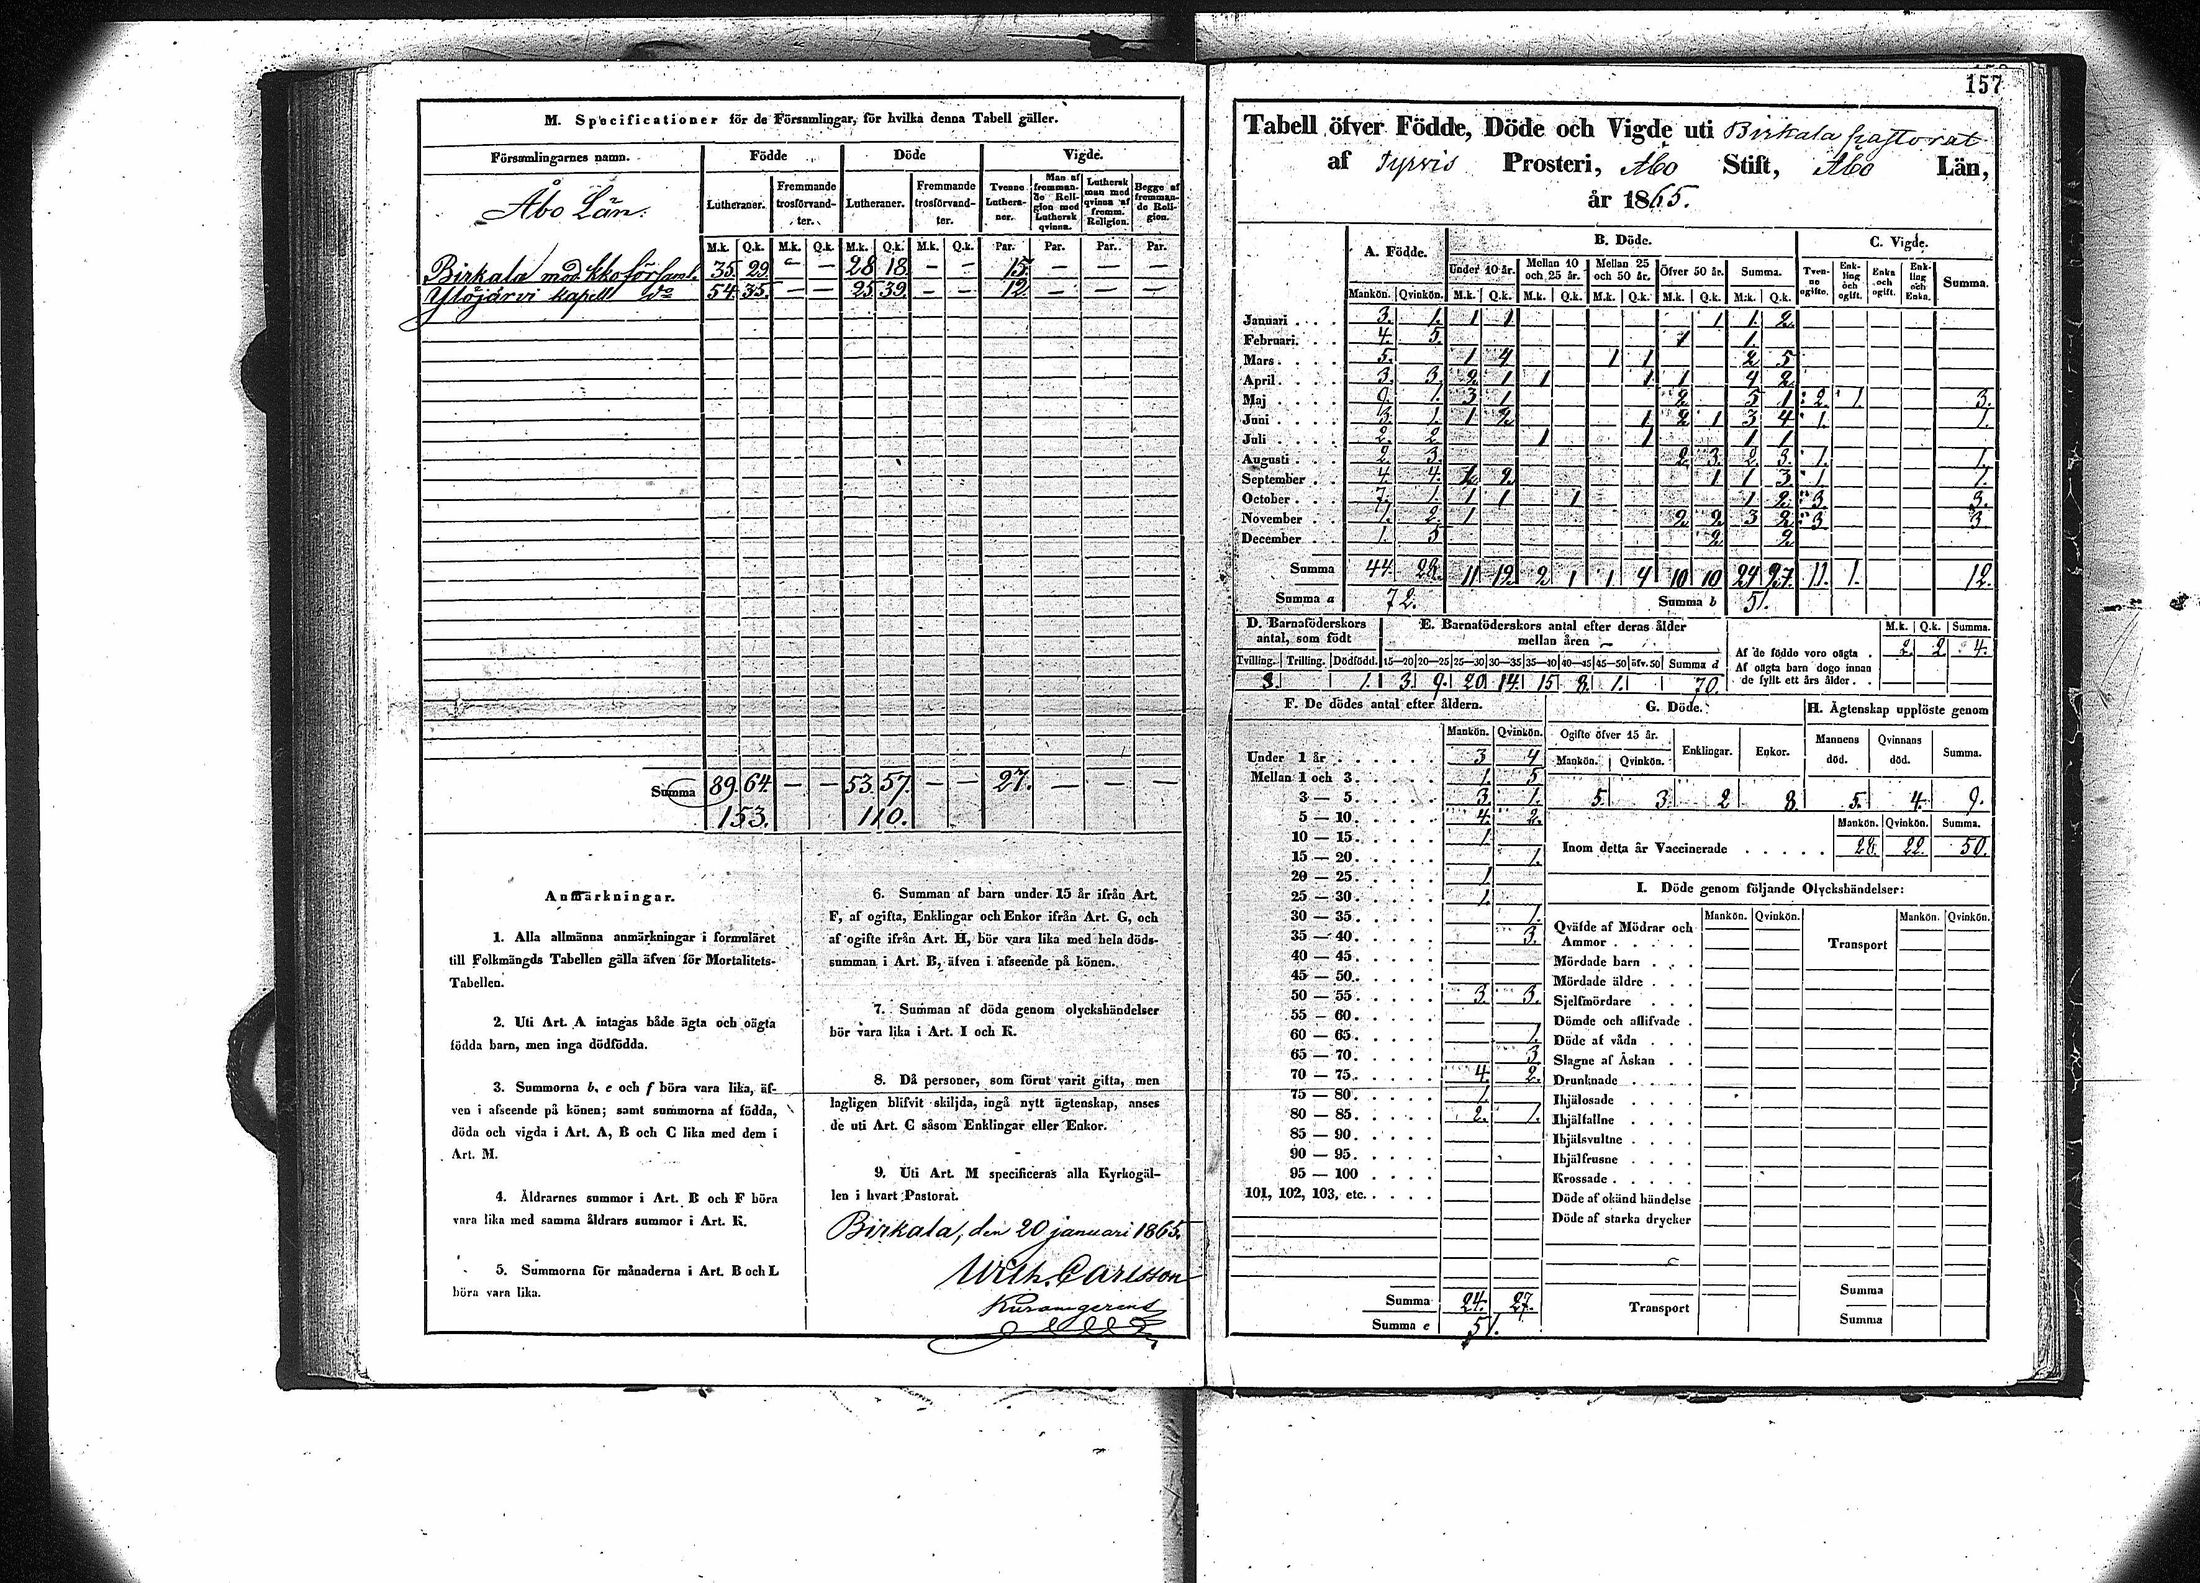 M. Specificationer för de Församlingar, för hvilka denna Tabell gäller.
Församlingarnes namn. Födde Döde Vigde.
Lutheraner. Fremmande trosförvandter. Lutheraner. Fremmande trosförvandter. Tvenne Lutheraner. Man af fremmande Religion med Luthersk qvinna. Luthersk man med qvinna af fremm. Religion. Begge af fremmande Religion.
Åbo Län.
M.k. Q.k. M.k. Q.k. M.k. Q.k. M.k. Q.k. Par. Par. Par. Par.
Birkala mod. kko förSaml. 35. 29. — — 28 18 — — 15. — — —
Ylöjärvi kapell do 54. 35. — — 25 39. — — 12. — — —
Summa 89. 64. — — 53. 57. — — 27. — — —
153. 110.
Anmärkningar.
1. Alla allmänna anmärkningar i formuläret
till Folkmängds Tabellen gälla äfven för Mortalitets-
Tabellen.
2. Uti Art. A intagas både ägta och oägta
födda barn, men inga dödfödda.
3. Summorna b, e och f böra vara lika, äf-
ven i afseende på könen; samt summorna af födda,
döda och vigda i Art. A, B och C lika med dem i
Art. M.
4. Åldrarnes summor i Art. B och F böra
vara lika med samma åldrars summor i Art. K.
5. Summorna för månaderna i Art. B och L
böra vara lika.
6. Summan af barn under 15 år ifrån Art.
F, af ogifta, Enklingar och Enkor ifrån Art. G, och
af ogifte ifrån Art. H, bör vara lika med hela döds-
summan i Art. B, äfven i afseende på könen.
7. Summan af döda genom olyckshändelser
bör vara lika i Art. I och K.
8. Då personer, som förut varit gifta, men
lagligen blifvit skiljda, ingå nytt ägtenskap, anses
de uti Art. C såsom Enklingar eller Enkor.
9. Uti Art. M specificeras alla Kyrkogäl-
len i hvart Pastorat.
Birkala, den 20 januari 1865.
Wilh. Carlsson
157
Tabell öfver Födde, Döde och Vigde uti Birkala pastorat
af Tyrvis Prosteri, Åbo Stift, Åbo Län,
år 1865.
A. Födde. B. Döde. C. Vigde.
Under 10 år. Mellan 10 och 25 år. Mellan 25 och 50 år. Öfver 50 år. Summa. Tvenne ogifte. Enkling och ogift. Enka och ogift. Enkling och Enka. Summa.
Mankön. Qvinkön. M.k. Q.k. M.k. Q.k. M.k. Q.k. M.k. Q.k. M.k. Q.k.
Januari 3. 1. 1 1 1 1 2.
Februari. 4. 5. 1 1.
Mars 5. 1 4 1 1 2 5
April 3. 3. 2 1 1 1 1 4 2
Maj 9. 1. 3 1 2 5 1 2. 1. 3.
Juni 3. 1. 1 2 1 2 1 3 4 1. 1.
Juli 2. 2 1 1 1 1
Augusti 2. 3. 2 3. 2. 3. 1. 1.
September 4. 4. 2. 1 1 3. 1. 1.
October 7. 1. 1 1 1 1 2 3. 3.
November 1. 2. 1 2 2. 3 2 3 3
December 1. 5 2 2
Summa 44. 28. 11 12 2 1 1 4 10 10 24 27. 11. 1. 12.
Summa a 72. Summa b 51.
D. Barnaföderskors antal, som födt E. Barnaföderskors antal efter deras ålder mellan åren
Tvilling. Trilling. Dödfödd. 15—20 20—25 25—30 30—35 35—40 40—45 45—50 öfv. 50 Summa d
3. 1. 3. 9. 20 14. 15 8. 1. 70.
M.k. Q.k. Summa.
Af de födde voro oägta . 2. 2. 4.
Af oägta barn dogo innan
de fyllt ett års ålder . .
F. De dödes antal efter åldern.
Mankön. Qvinkön.
Under 1 år 3 4
Mellan 1 och 3 1. 5
3 — 5. 3. 1.
5 — 10. 4. 2.
10 — 15. 1.
15 — 20. 1.
20 — 25. 1
25 — 30. 1.
30 — 35. 1.
35 — 40. 3.
40 — 45.
45 — 50.
50 — 55. 3 3.
55 — 60.
60 — 65. 1.
65 — 70. 3
70 — 75. 4. 2.
75 — 80. 1.
80 — 85. 2. 1.
85 — 90.
90 — 95.
95 — 100
101, 102, 103, etc.
Summa 24. 27.
Summa e 51.
G. Döde.
Ogifte öfver 15 år. Enklingar. Enkor.
Mankön. Qvinkön.
5. 3. 2 8.
H. Ägtenskap upplöste genom
Mannens död. Qvinnans död. Summa.
5. 4. 9.
Mankön. Qvinkön. Summa.
Inom detta år Vaccinerade 28. 22. 50.
I. Döde genom följande Olyckshändelser:
Mankön. Qvinkön. Mankön. Qvinkön.
Qväfde af Mödrar och
Ammor Transport
Mördade barn
Mördade äldre
Sjelfmördare
Dömde och aflifvade
Döde af våda
Slagne af Åskan
Drunknade
Ihjälosade
Ihjälfallne
Ihjälsvultne
Ihjälfrusne
Krossade
Döde af okänd händelse
Döde af starka drycker
Summa
Transport Summa